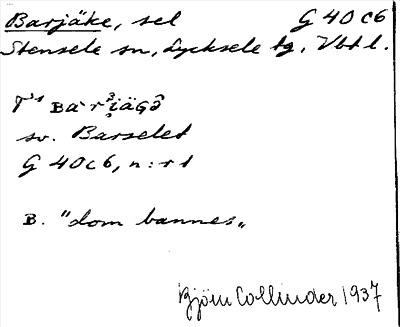 Barjäke, sel G 40 c6
Stensele sn, Lycksele tg, Vbt l.
sv. Barselet
G 40 c 6, n:r 1
B. "dom bannes"
Björn Collinder 1937